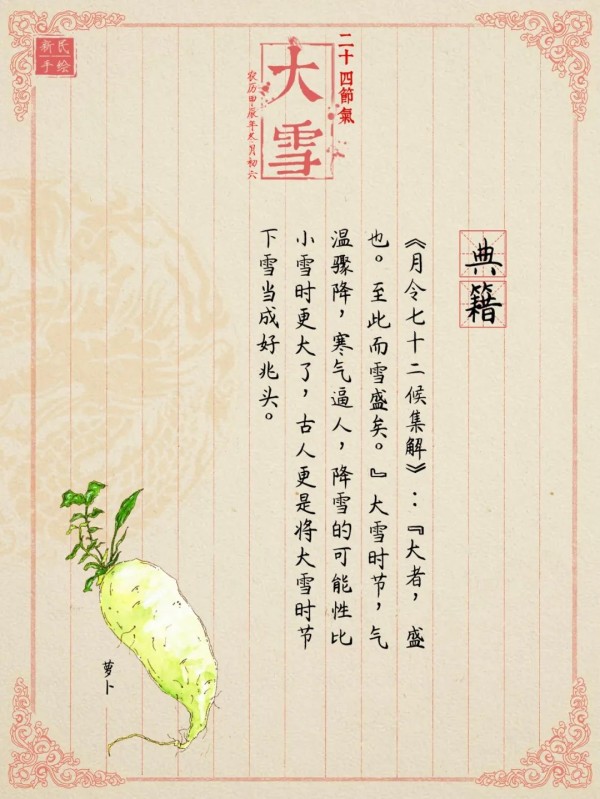 新民
手绘
二十四節氣
大雪
农历甲辰年冬月初六
典籍
《月令七十二候集解》：『大者，盛
也。至此而雪盛矣。』大雪时节，气
温骤降，寒气逼人，降雪的可能性比
小雪时更大了，古人更是将大雪时节
下雪当成好兆头。
萝卜